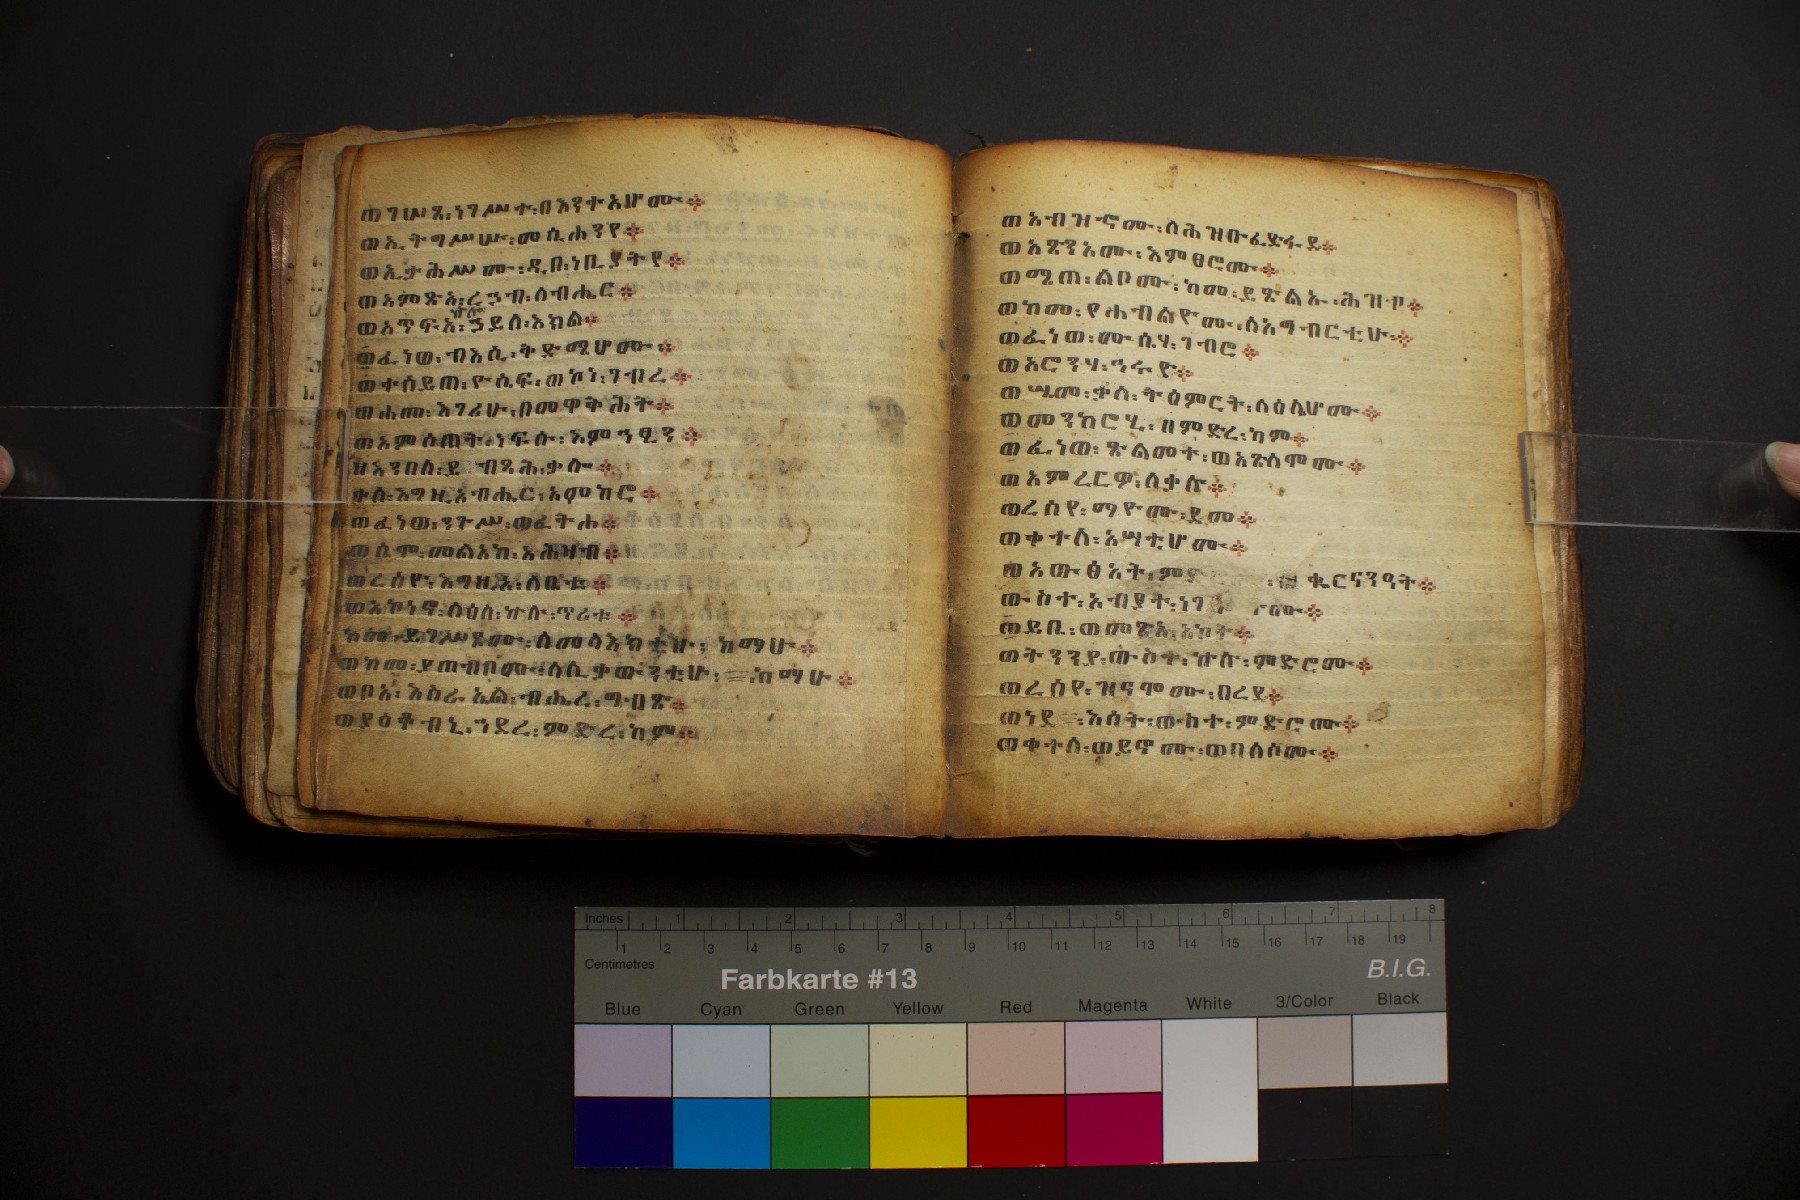 ወገሠጸ፡ነገሥተ፡በእንተ፡አሆሙ።
ወኢትግሥሡ፡መሲሐንየ።
ወኢታሕሥሙ፡ዲበ፡ነቢያትየ።
ወአምጽአ፡ረኃብ፡ለብሔር።
ወአጥፍአ፡ኃይለ፡እክል።
ኵሉ
ወፈነወ፡ብእሲ፡ቅድሜሆሙ።
ወተሰይጠ፡ዮሴፍ፡ወኮነ፡ገብረ።
ወሐሙ፡እገሪሁ፡በመዋቅሕት።
ወአምሰጠት፡ነፍሱ፡እምኀፂን።
ዘእንበለ፡ይ ብጻሕ፡ቃሉ።
ቃለ፡እግዚአብሔር፡አመከሮ።
ወፈነወ፡ንጉሥ፡ወፈትሐ።
ወሴሞ፡መልአከ፡አሕዛብ።
ወረሰዮ፡እግዚአ፡ለቤቱ።
ወአኰነኖ፡ለዕለ፡ኵሉ፡ጥሪቱ።
ከመ፡ይገሥጾሙ፡ለመላእክቲሁ፡ከማሁ።
ወከመ፡ያጠብቦሙ፡ለሊቃውንቲሁ፡ከማሁ።
ወቦአ፡እስራኤል፡ብሔረ፡ግብጽ።
ወያዕቆብኒ፡ኀደረ፡ምድረ፡ካም።
ወአብዝኆሙ፡ለሕዝቡ፡ፈድፋደ።
ወአጽንአሙ፡እምፀሮሙ።
ወሜጠ፡ልቦሙ፡ከመ፡ይጽልኡ፡ሕዝቦ።
ወከመ፡የሐብልዮሙ፡ለአግብርቲሁ።
ወፈነወ፡ሙሴሃ፡ገብሮ።
ወአሮንሃ፡ኅሩየ።
ወሤመ፡ቃለ፡ትዕምርት፡ለዕሌሆሙ።
ወመንከሮሂ፡በምድረ፡ካም።
ወፈነወ፡ጽልመተ፡ወአጽለሞሙ።
ወአምረርዎ፡ለቃሉ።
ወረሰየ፡ማዮሙ፡ደመ።
ወቀተለ፡አሣቲሆሙ።
ወአውፅአት፡ቈርናንዓት።
ውስተ፡አብያት፡
ወይቤ፡ወመጽአ፡አኮት።
ወትንንያ፡ውስተ፡ኵሉ፡ምድሮሙ።
ወረሰየ፡ዝናሞሙ፡በረደ።
ወነደ፡እሳት፡ውስተ፡ምድሮሙ።
ወቀተለ፡ወይኖሙ፡ወበለሶሙ።
Inches 1 2 3 4 5 6 7 8
1 2 3 4 5 6 7 8 9 10 11 12 13 14 15 16 17 18 19
Centimetres
Farbkarte #13
B.I.G.
Blue Cyan Green Yellow Red Magenta White 3/Color Black